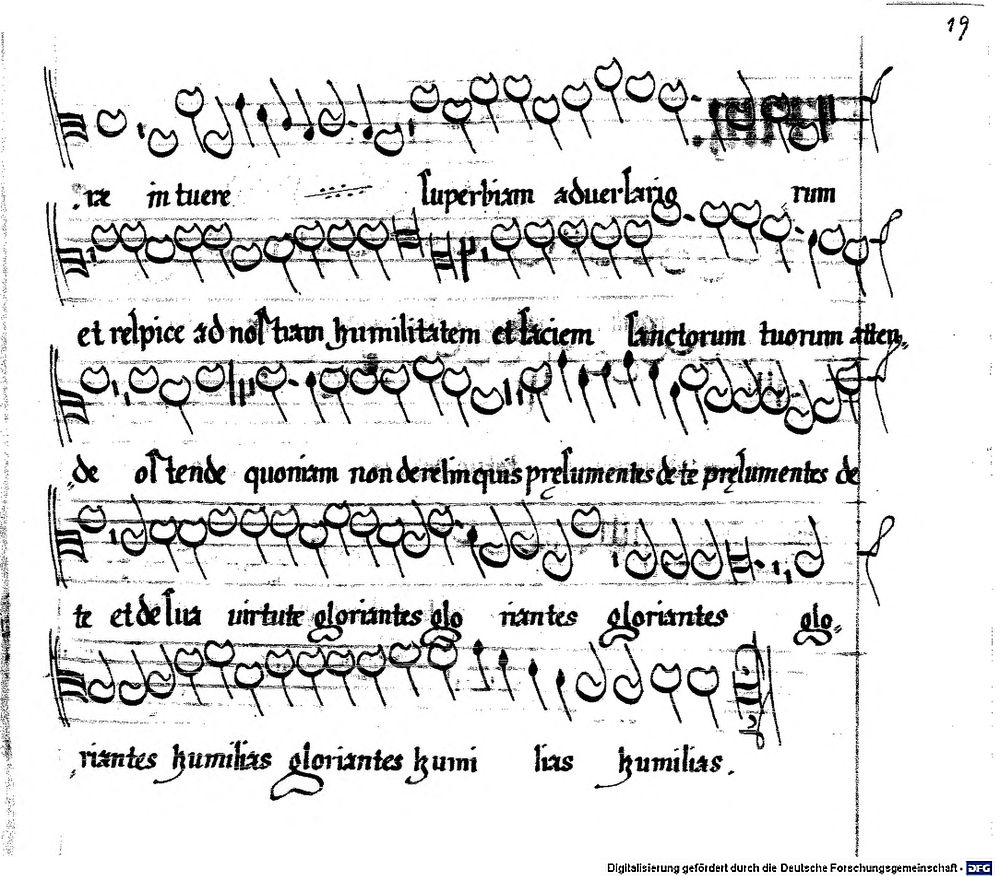 19
ræ intuere superbiam aduersario rum
et respice ad nostram humilitatem et faciem sanctorum tuorum atten=
de ostende quoniam non derelinquis pręsumentes de te pręsumentes de
te et de sua uirtute gloriantes glo riantes gloriantes glo=
riantes humilias gloriantes humi lias humilias.
Digitalisierung gefördert durch die Deutsche Forschungsgemeinschaft - DFG